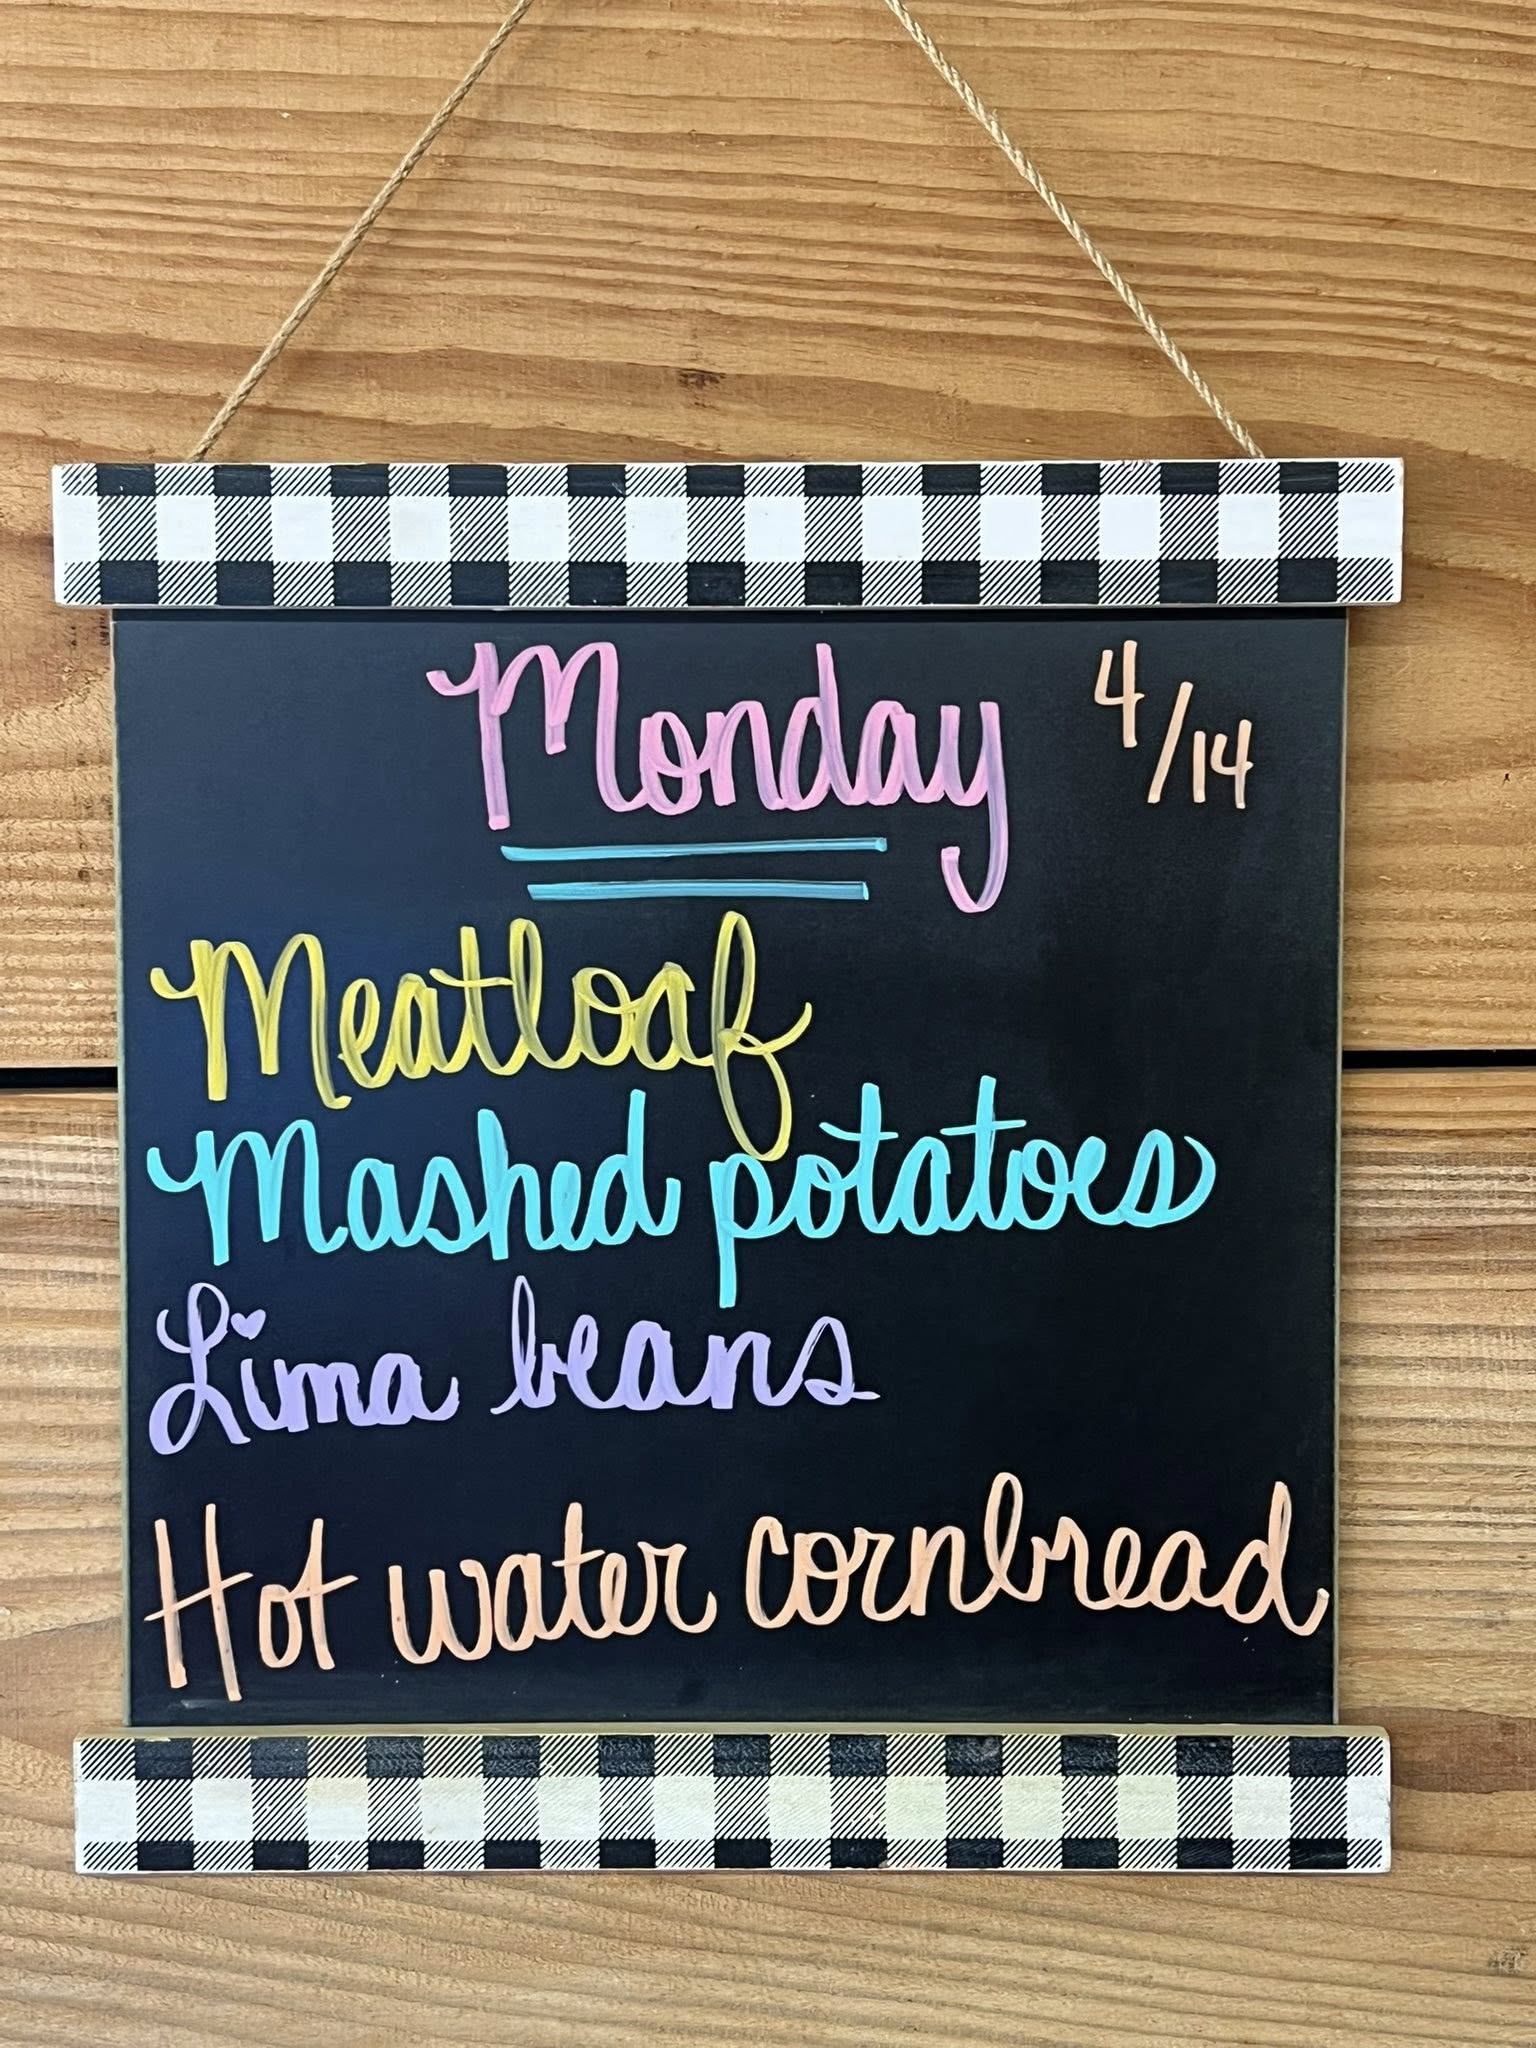 Monday 4/14
Meatloaf
Mashed potatoes
Lima beans
Hot water cornbread